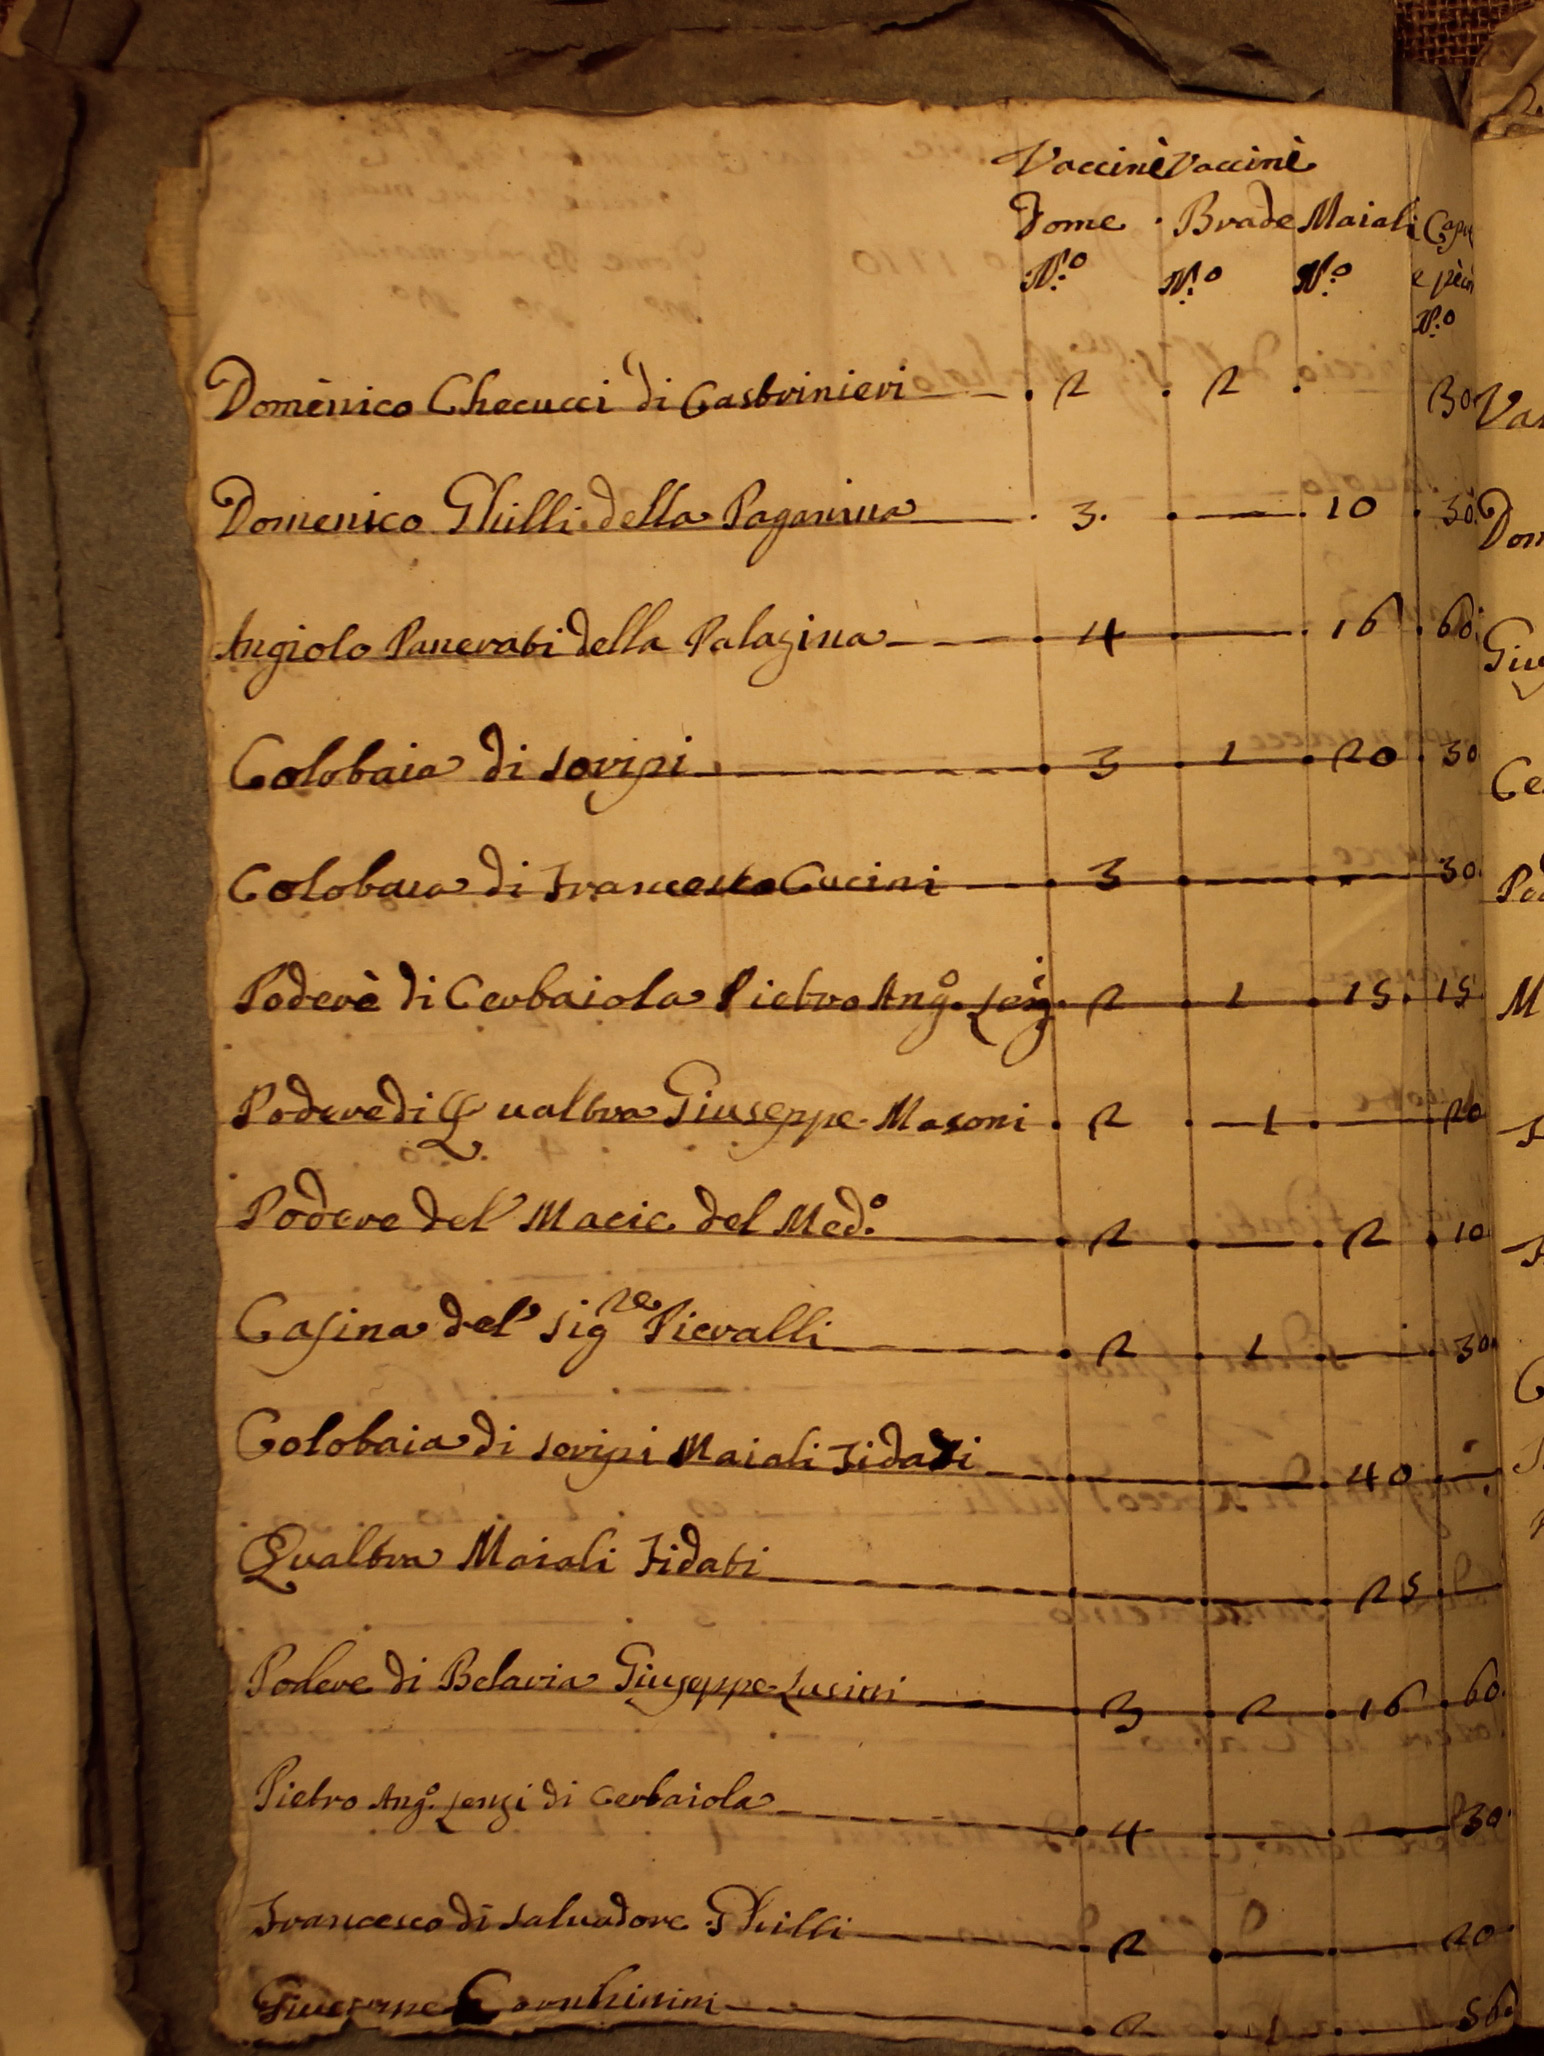 Vaccinè Vaccinè
Dome Brade Maiali
N.o N.o N.o e
N.o
Domènico Checucci di Castrinieri 2 2 30
Domenico Ghilli della Paganina 3 10 30
Angiolo Pancrati della Palazina 4 16 60
Colobaia di Soripi 3 1 20 30
Colobaia di Francesco Cucini 3 30
Poderè di Cerbaiola Pietro Ang.o 2 1 15 15
Podere di Qualtra Giuseppe Masoni 2 1 20
Podere del Macie del Med.o 2 2 10
Casina del Sig.re Pieralli 2 1 30
Colobaia di Soripi Maiali Fidati 40
Qualtra Maiali Fidati 25
Podere di Belaria Giuseppe Lusini 3 2 16 60
Pietro Ang.o Lenzi di Cerbaiola 4 30
Francesco di Salvadore Ghilli 2 20
2 1